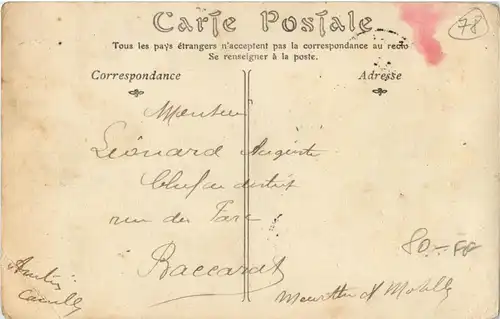 Carte Postale
78
Tous les pays étrangers n'acceptent pas la correspondance au recto
Se renseigner à la poste.
Correspondance
Adresse
Monsieur
Léonard Auguste
Chef de district
rue du Parc
Baccarat
Meurthe & Moselle
Camille
80.- FF